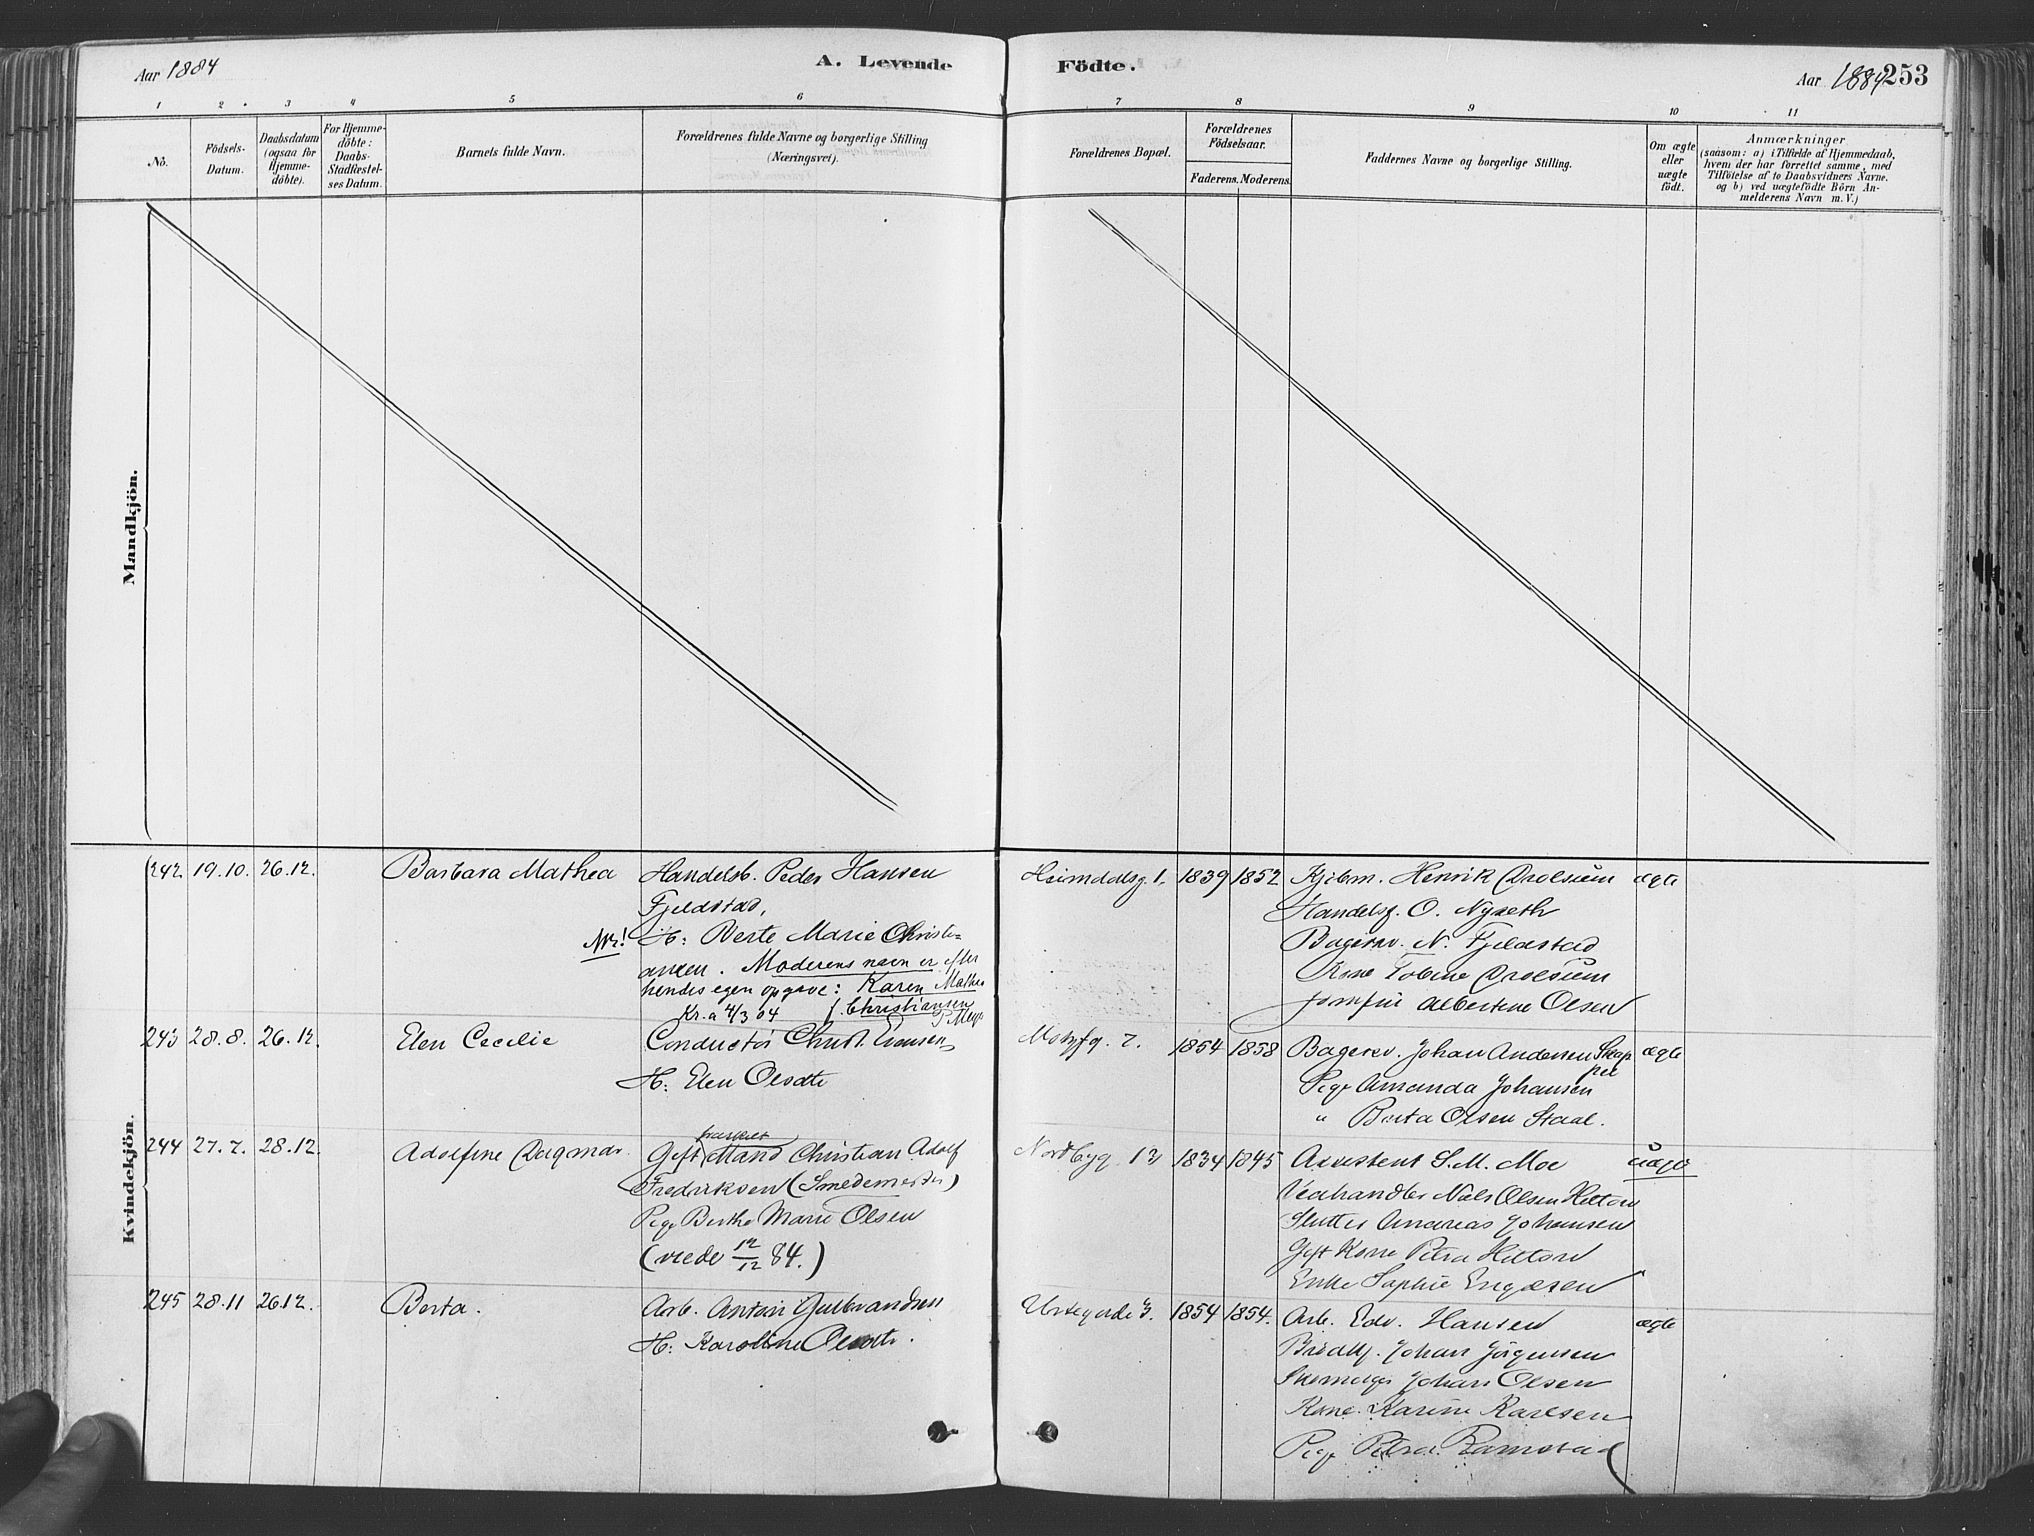 Aar 1884
A. Levende
Födte.
Aar 1884 253
1 2 3 4 5 6 7 8 9 10 11
No.
Födsels-
Datum.
Daabsdatum
(ogsaa for
Hjemme-
döbte).
For Hjemme-
döbte:
Daabs-
Stadfæstel-
ses Datum.
Barnets fulde Navn.
Forældrenes fulde Navne og borgerlige Stilling
(Næringsvei).
Forældrenes Bopæl.
Forældrenes
Födselsaar.
Faderens. Moderens.
Faddernes Navne og borgerlige Stilling.
Om ægte
eller
uægte
födt.
Anmærkninger
(saasom: a) i Tilfælde af Hjemmedaab,
hvem der har forrettet samme, med
Tilföielse af to Daabsvidners Navne.
og b) ved uægtefödte Börn An-
melderens Navn m. V.)
Mandkjön.
Kvindekjön.
242 19.10. 26.12. Barbara Mathea
Handelsb. Peder Hansen
Fjeldstad,
H: Berte Marie Christi-
ansen. Moderens navn er efter
hendes egen opgave: Karen Mathea
Kr.a 4/3 04 Christiansen
Heimdalsg. 1, 1839 1852
Kjöbm. Henrik Drolsum
Handelsf. O. Nyseth
Bagersv. N. Fjeldstad
Kone Tobine Drolsum
Jomfru Albertine Olsen
ægte
243 28.8. 26.12. Elen Cecilie
Conductör Christ. Evensen
H: Elen Olsdtr
1854 1858
Bagersv. Johan Andersen
Pige Amanda Johansen
" Berta Olsen Staal.
ægte
244 27.7. 28.12. Adolfine Dagmar
fraskilt
Gift Mand Christian Adolf
Fredriksen (Smedemester)
Pige Berthe Marie Olsen
(viede 12/12 84.)
Nordbyg. 13 1834 1845
Assistent S. M. Moe
Vedhandler Nils Olsen Hilton
Slutter Andreas Johansen
Gift Kone Petra Hilton
Enke Sophie Engesen
uægte
245 28.11 26.12. Berta.
Arb. Anton Gulbrandsen
H: Karoline Olsdtr.
Urtegade 3. 1854 1854.
Arb. Edv. Hansen
Johan Jörgensen
Johan Olsen
Kone Karine Karlsen
Pige Petra Ramstad
ægte